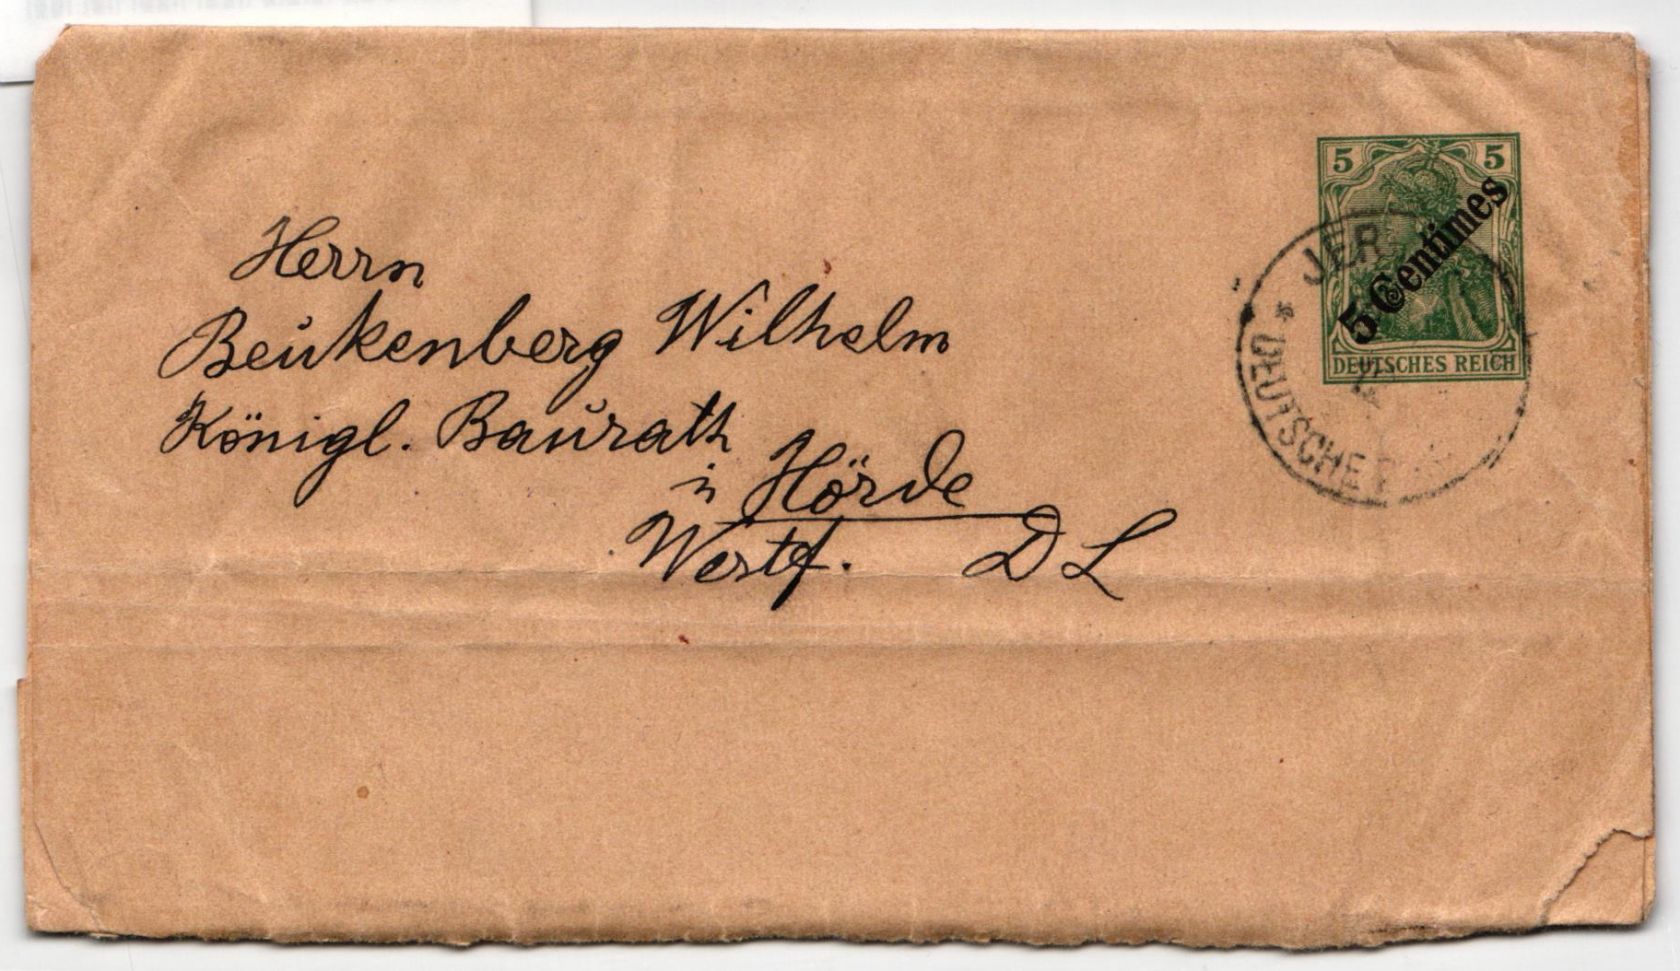 5 5
5 Centimes
DEUTSCHES REICH
JER
* DEUTSCHE P
Herrn
Beukenberg Wilhelm
Königl. Baurath
in Hörde
Westf. DL